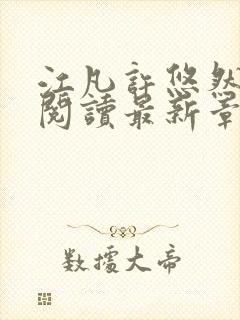 江凡許悠然
閱讀最新章
數據大帝